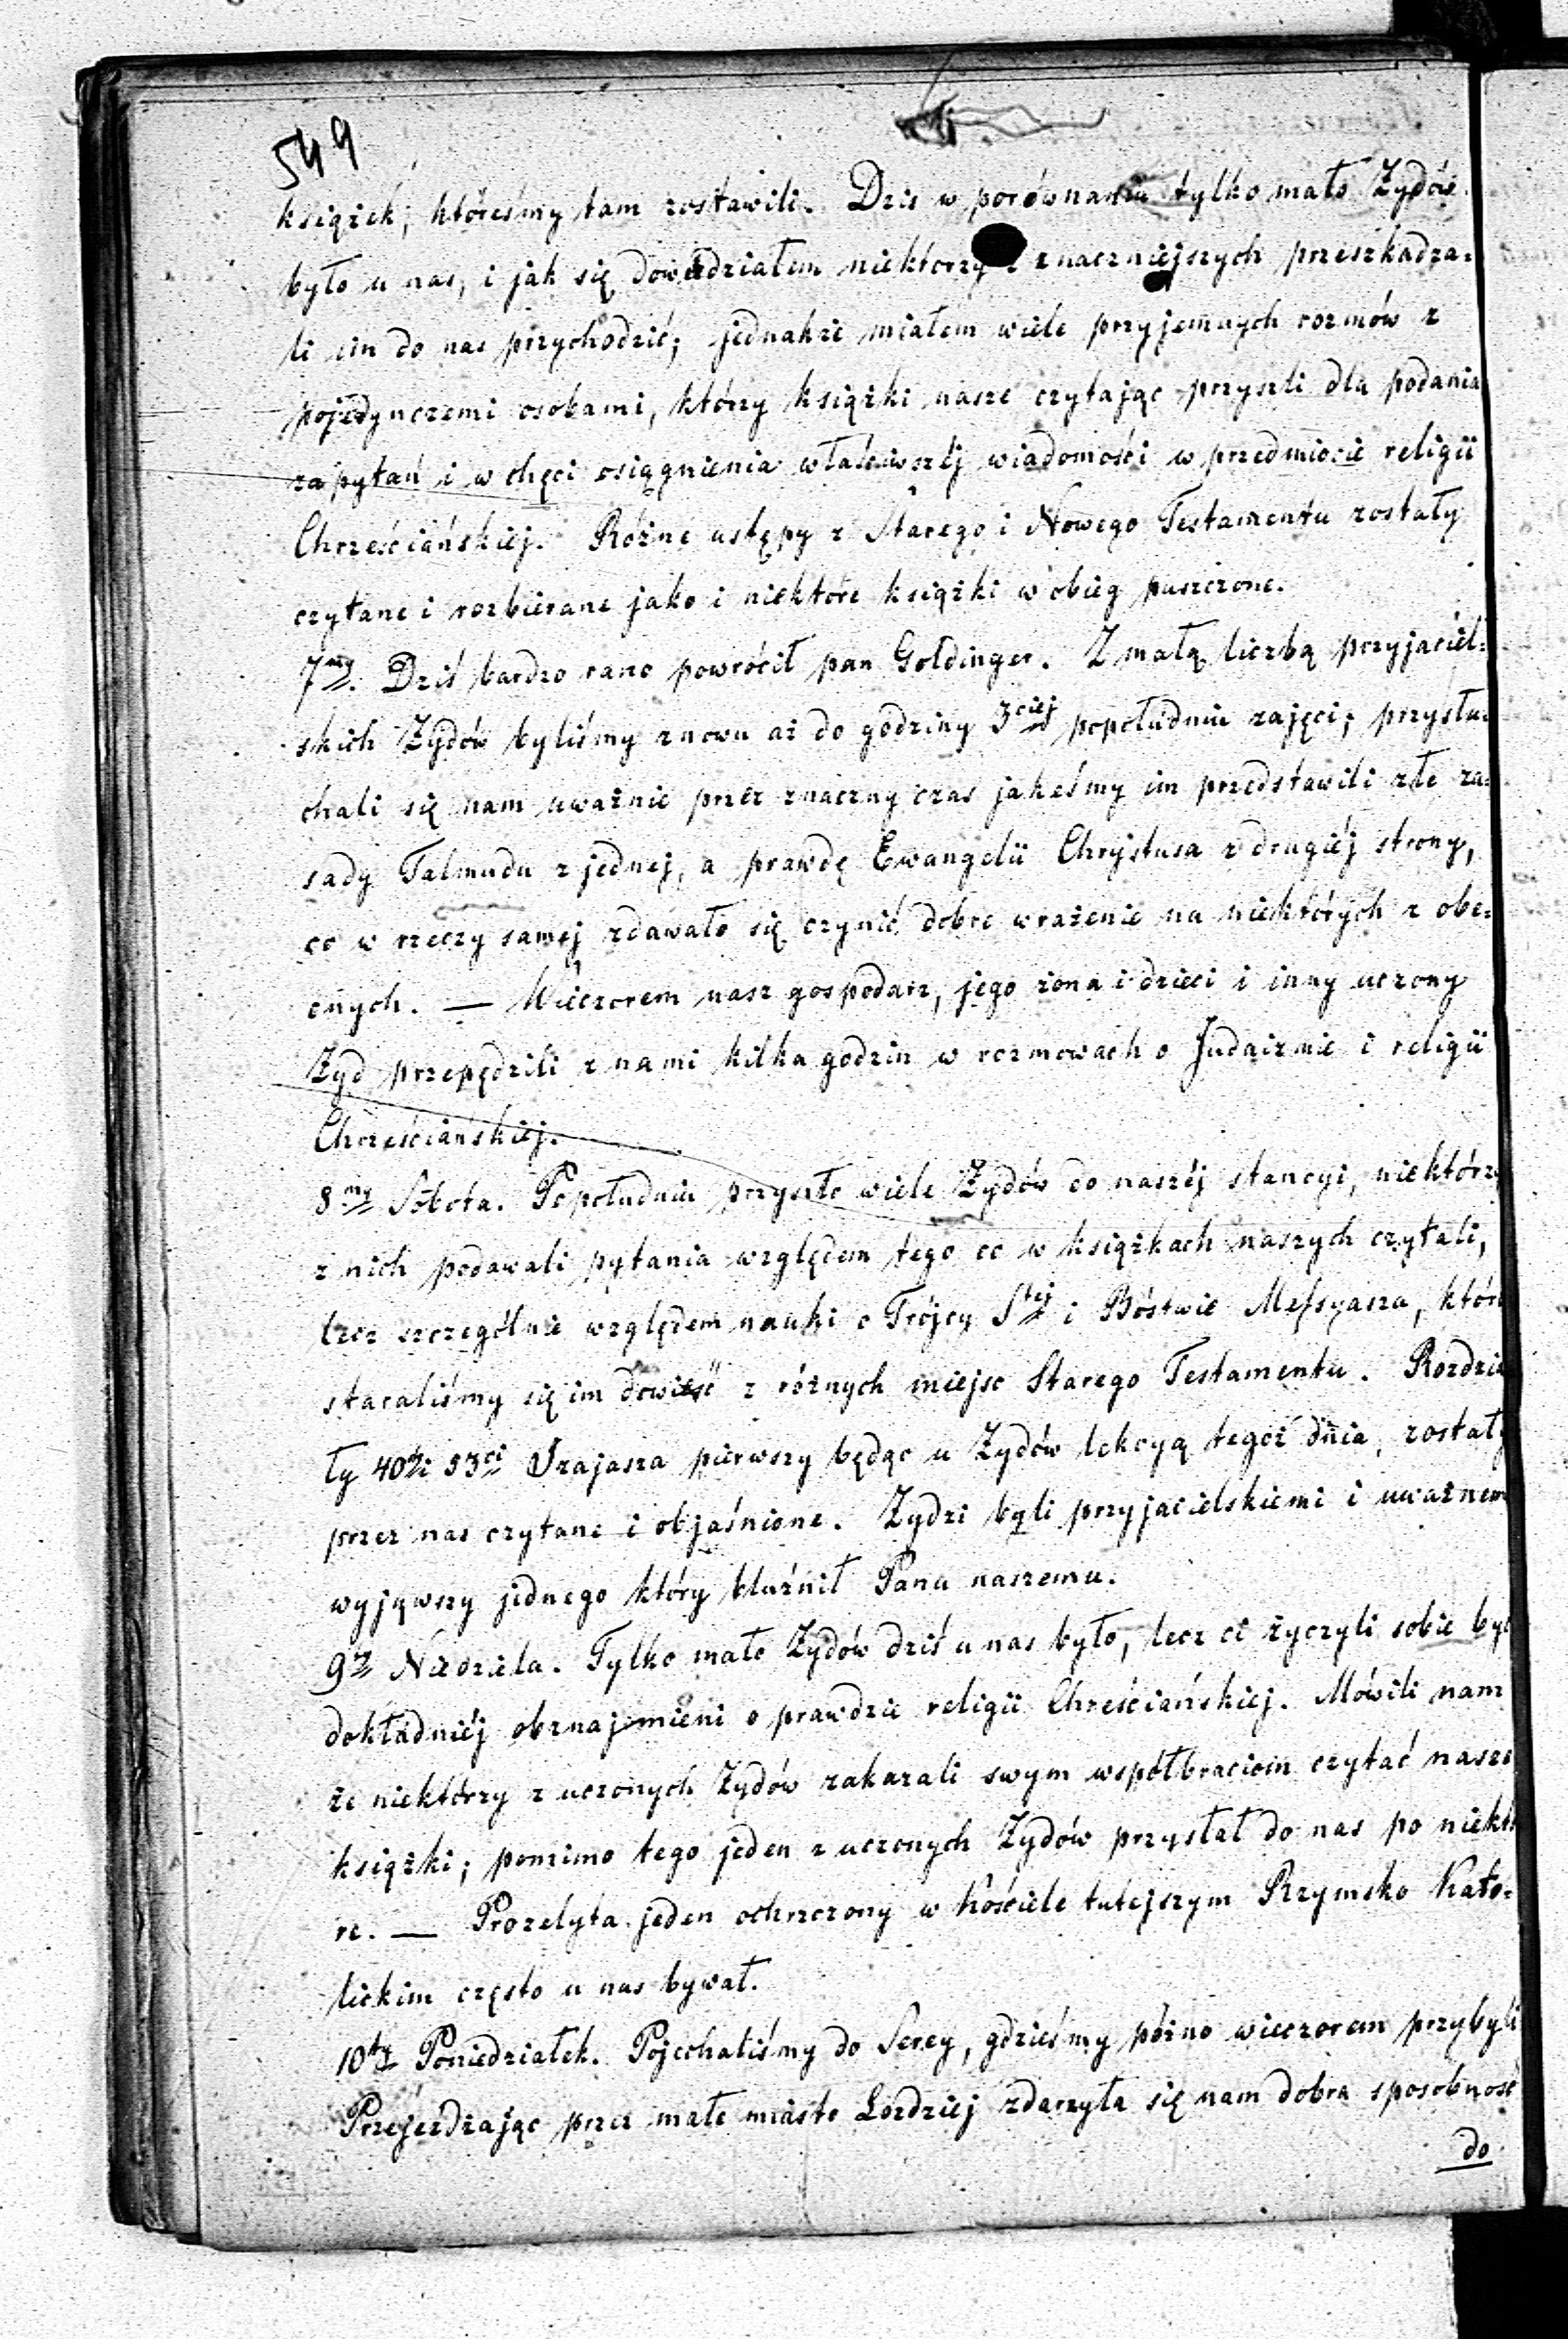 549
książek, któreśmy tam zostawili. Dziś w porównaniu tylko mało Żydów
było u nas, i jak się dowiedziałem niektórzy z znaczniejszych przeszkadza=
li im do nas przychodzić; jednakże miałem wiele przyjemnych rozmów z
pojedynczemi osobami, którzy książki nasze czytając przyszli dla podania
zapytań i w chęci osiągnienia właściwszéj wiadomości w przedmiocie religii
Chrześciańskiéj. Różne ustępy z Starego i Nowego Testamentu zostały
czytane i rozbierane jako i niektóre książki w obieg puszczone.
7my. Dziś bardzo rano powrócił pan Goldinger. Z małą liczbą przyjaciel=
skich Żydów byliśmy znowu aż do godziny 3ciéj popołudniu zajęci; przysłu=
chali się nam uważnie przez znaczny czas jakeśmy im przedstawili złe za=
sady Talmudu z jednej, a prawdę Ewangelii Chrystusa z drugiéj strony,
co w rzeczy samej zdawało się czynić dobre wrażenie na niektórych z obe=
cnych. — Wieczorem nasz gospodarz, jego żona i dzieci i inny uczony
Żyd przepędzili z nami kilka godzin w rozmowach o Judaizmie i religii
Chrześciańskiéj.
8my Sobota. Popołudniu przyszło wiele Żydów do naszéj stancyi, niektórzy
z nich podawali pytania względem tego co w książkach naszych czytali,
lecz szczególnie względem nauki o Trójcy Stej i Bóstwie Messyasza, któr
staraliśmy się im dowieść z różnych miejsc Starego Testamentu. Rozdzia
ły 40ty i 53ci Izajasza pierwszy będąc u Żydów lekcyą tegoż dnia, zostały
przez nas czytane i objaśnione. Żydzi byli przyjacielskiemi i uważnem
wyjąwszy jednego który bluźnił Panu naszemu.
9ty Niedziela. Tylko mało Żydów dziś u nas było, lecz ci życzyli sobie być
dokładniéj obznajmieni o prawdzie religii Chreściańskiej. Mówili nam
że niektórzy z uczonych Żydów zakazali swym współbraciom czytać nasze
książki; pomimo tego jeden z uczonych Żydów przysłał do nas po niektó
re. — Prozelyta jeden ochrzczony w kościele tutejszym Rzymsko Kato=
lickim często u nas bywał.
10ty Poniedziałek. Pojechaliśmy do Serey, gdzieśmy późno wieczorem przybyli
Przejeżdżając przez małe miasto Łoździej zdarzyła się nam dobra sposobność
do